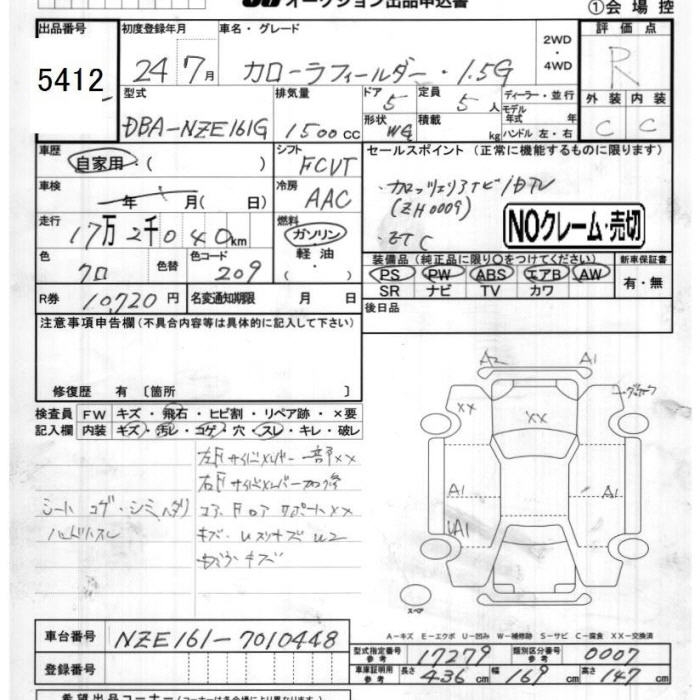 オークション出品申込書
①会場控
出品番号 初度登録年月 車名・グレード 評価点
5412 24 7月 カローラフィールダー・1.5G 2WD・4WD R
型式 排気量 ドア 5 定員 5人 ディーラー・並行 外装 内装
DBA-NZE161G 1500cc 形状 WG 積載 kg モデル年式 年 ハンドル 左・右 C C
車歴 自家用・( ) シフト FCVT セールスポイント (正常に機能するものに限ります)
車検 年 月( 日) 冷房 AAC カロッツェリアナビ/DTV
(ZH0009)
走行 17万2千040km 燃料 ガソリン 軽油・ ETC
NOクレーム・売切
色 クロ 色替 色コード 209 装備品(純正品に限り○をつけてください) 新車保証書
PS PW ABS エアB AW 有・無
SR ナビ TV カワ
R券 10720円 名変通知期限 月 日 後日品
注意事項申告欄(不具合内容等は具体的に記入して下さい)
修復歴 有 〔箇所 〕
検査員 FW キズ・飛石・ヒビ割・リペア跡・×要
記入欄 内装 キズ・汚レ・コゲ・穴・スレ・キレ・破レ
左Fサイドメンバー一部××
右Fサイドメンバー
シートコゲ・シミ・ヘタリ コアサポート××
ハンドルスレ キズ
A2 A1
XX XX
A1 A1
A1
スペア
A-キズ E-エクボ U-凹み W-補修跡 S-サビ C-腐食 XX-交換済
車台番号 NZE161-7010448 型式指定番号 参考 17279 類別区分番号 参考 0007
登録番号 車庫証明用 参考 長さ 436cm 幅 169cm 高さ 147cm
希望出品コーナー